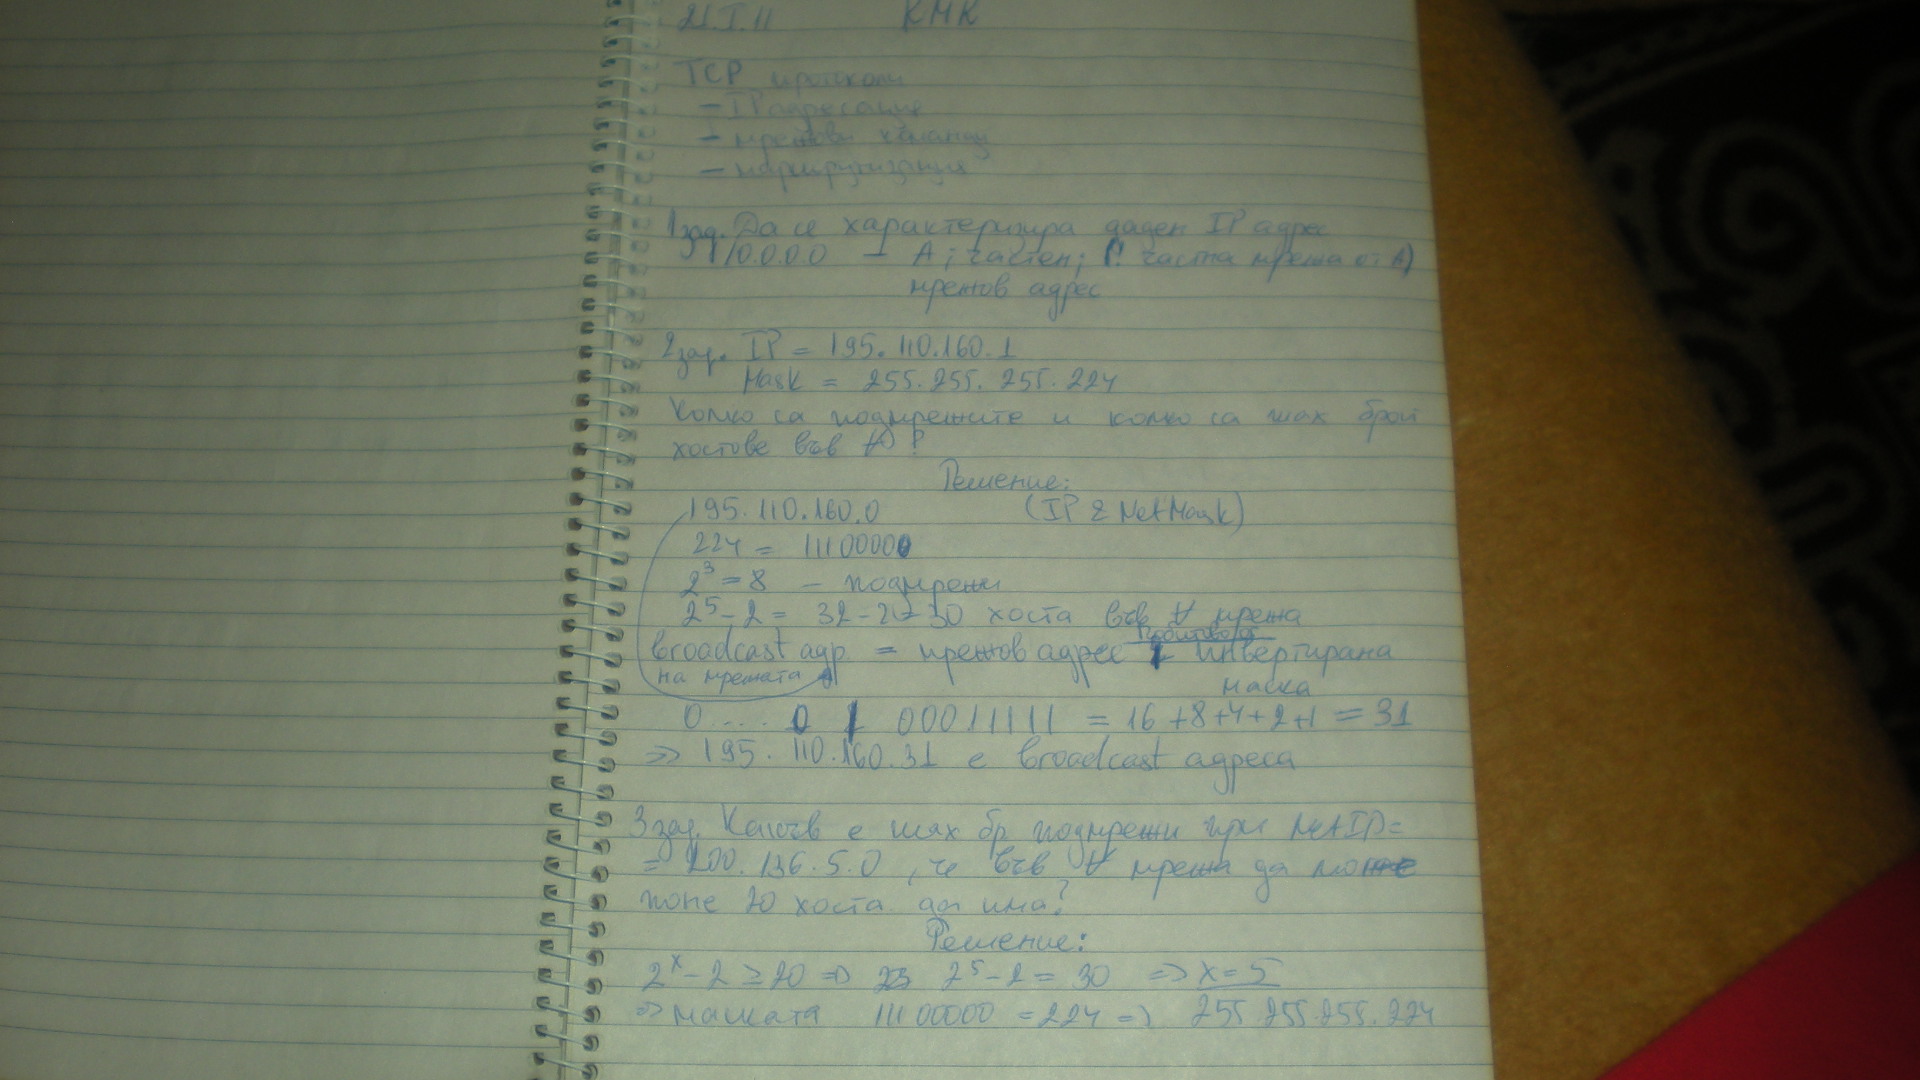 21.I.11 КМК
TCP протоколи
- IP адресация
- мрежови команди
- маршрутизация
1 зад. Да се характеризира даден IP адрес
10.0.0.0 - A; частен; (! частна мрежа от A)
мрежов адрес
2 зад. IP = 195.110.160.1
Mask = 255.255.255.224
Колко са подмрежите и колко са мах брой
хостове във ∀?
Решение:
195.110.160.0 (IP & NetMask)
224 = 11100000
2^3 = 8 - подмрежи
2^5 - 2 = 32 - 2 = 30 хоста във ∀ мрежа
побитово или
broadcast адр. = мрежов адрес | инвертирана
на мрежата маска
0 .... 0 | 00011111 = 16+8+4+2+1 = 31
=> 195.110.160.31 е broadcast адреса
3 зад. Какъв е мах бр подмрежи при NetIP=
= 200.136.5.0, че във ∀ мрежа да може
поне 20 хоста да има?
Решение:
2^x - 2 ≥ 20 => 2^5 - 2 = 30 => x = 5
=> маската 11100000 = 224 => 255.255.255.224